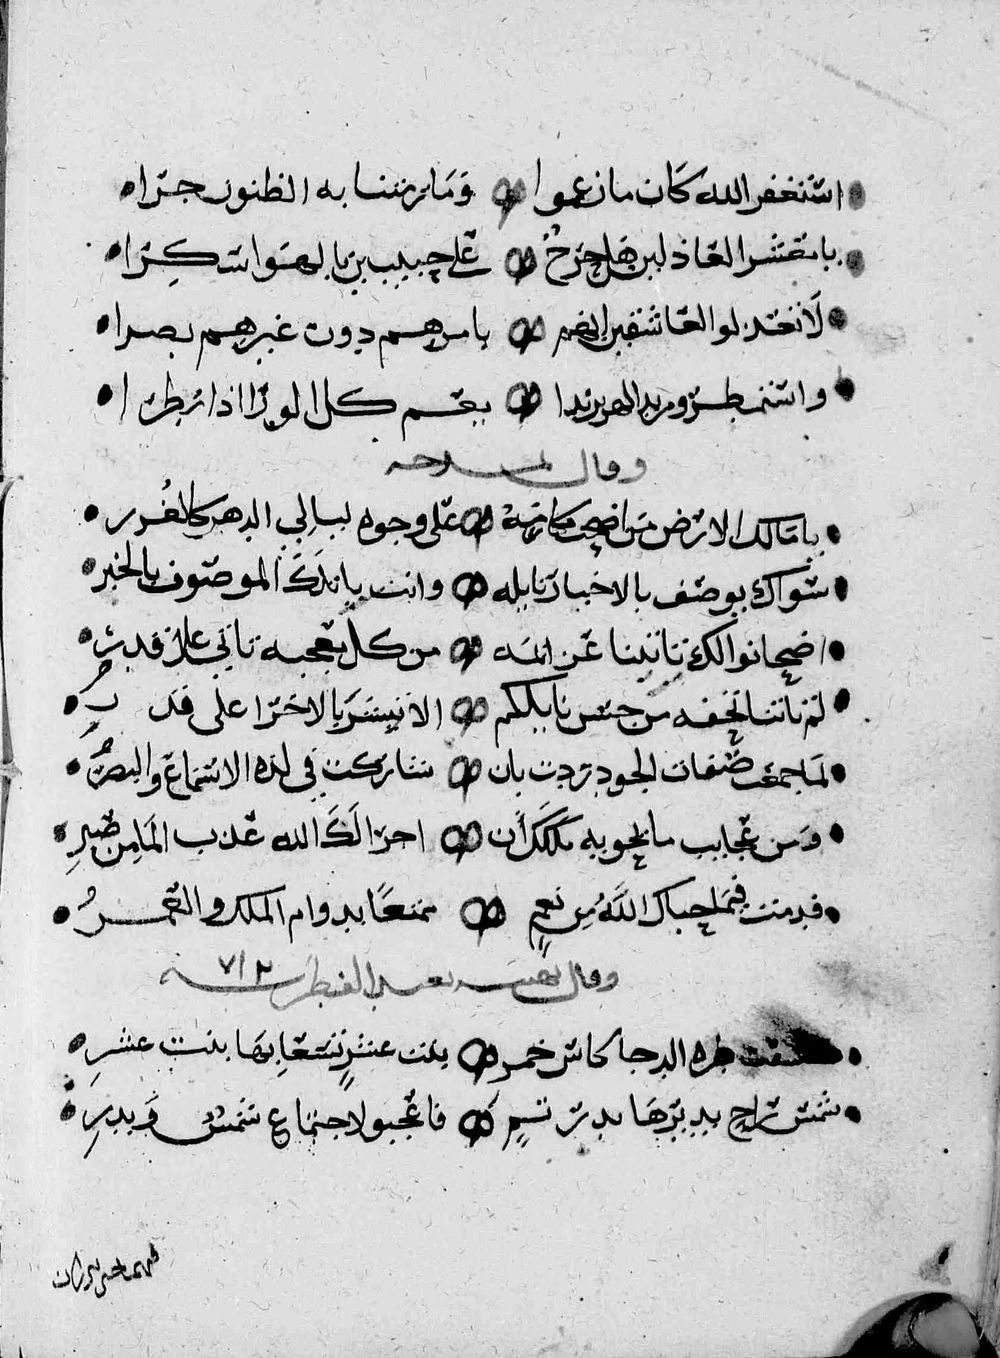 استغفر الله كان ما زعموا وما رمتنا به الظنون جرا
يا معشر العاذلين هل حرج على حبيب بن بالهوا سكرا
لا تعذلوا العاشقين انهم بامرهم دون غيرهم بصرا
واستمطروا يعم كل الورا اذا زطرا
وقال يمدحه
يا مالك الارض من اضحت مكارمه على وجوه ليالي الدهر كالغرر
سواك يوصف بالاخبار نايله وانت يا ملك الموصوف بالخبر
اضحا نوالك تاتينا غرائبه من كل معجبة تاتي على قدر
لم تاتنا تحفه من جنس نايلكم الا تيسر بالاخرا على قدر
لما جمعت صفات الجود بان شاركت في لذه الاسماع والبصر
ومن عجايب ما تحويه ملكك أن اجرا لك الله عذب الما من
قد مت فيما حباك الله من نعم ممتعا بدوام الملك والعمر
وقال يهنيه بعيد الفطر سنة ٧١٢
طره الدجا كاس خمر بنت عشر تسعا بها بنت عشر
شمس راح يديرها بدر تم فاعجبو لاجتماع شمس وبدر